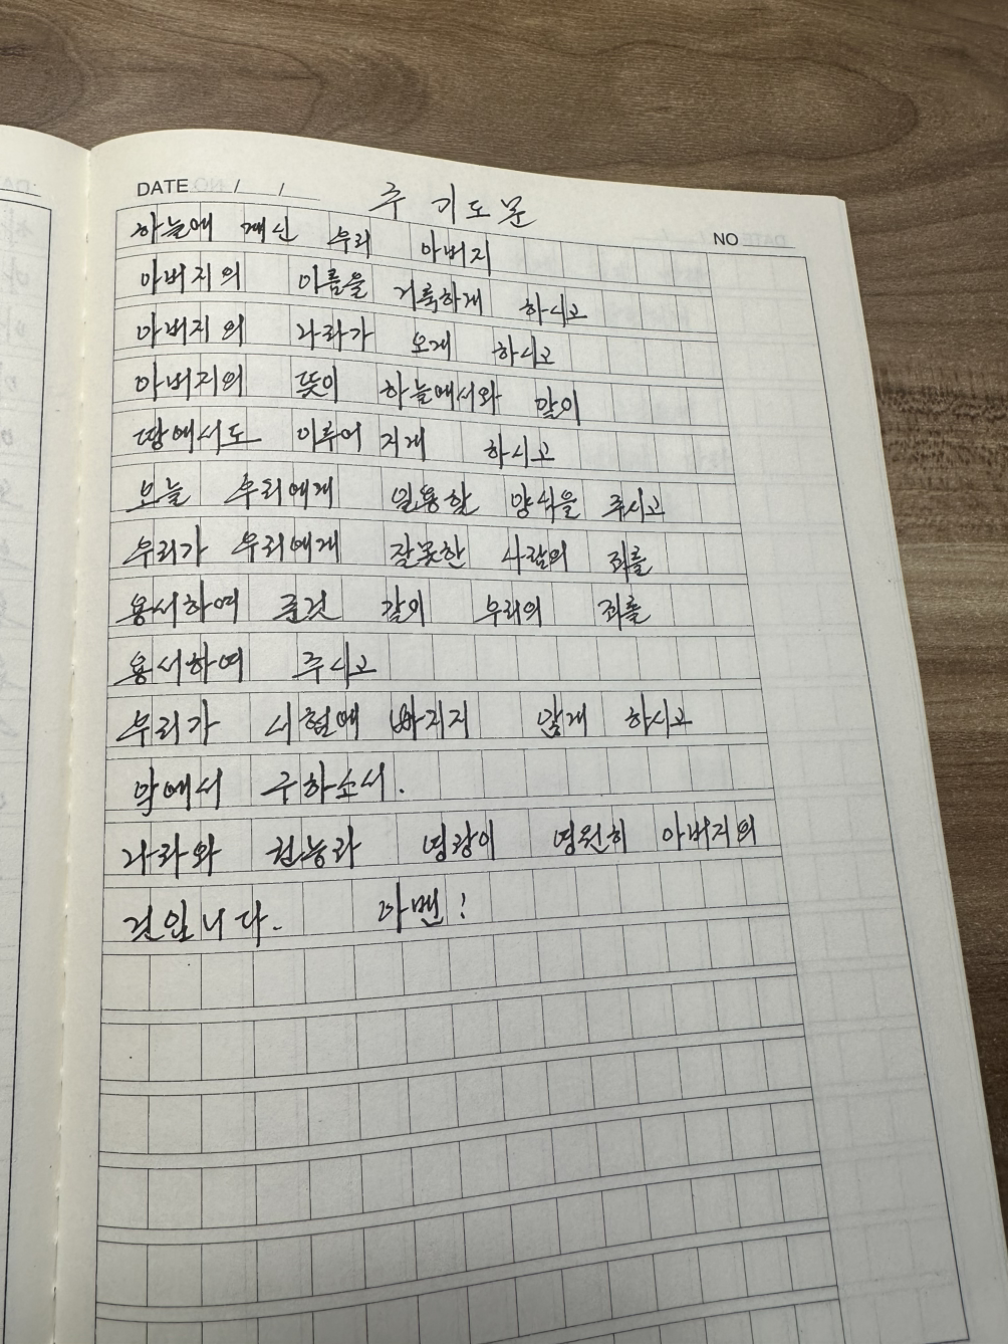 DATE / /
주 기도문
NO
하늘에 계신 우리 아버지
아버지의 이름을 거룩하게 하시고
아버지의 나라가 오게 하시고
아버지의 뜻이 하늘에서와 같이
땅에서도 이루어 지게 하시고
오늘 우리에게 일용할 양식을 주시고
우리가 우리에게 잘못한 사람의 죄를
용서하여 준것 같이 우리의 죄를
용서하여 주시고
우리가 시험에 빠지지 않게 하시고
악에서 구하소서.
나라와 권능과 영광이 영원히 아버지의
것입니다. 아멘!